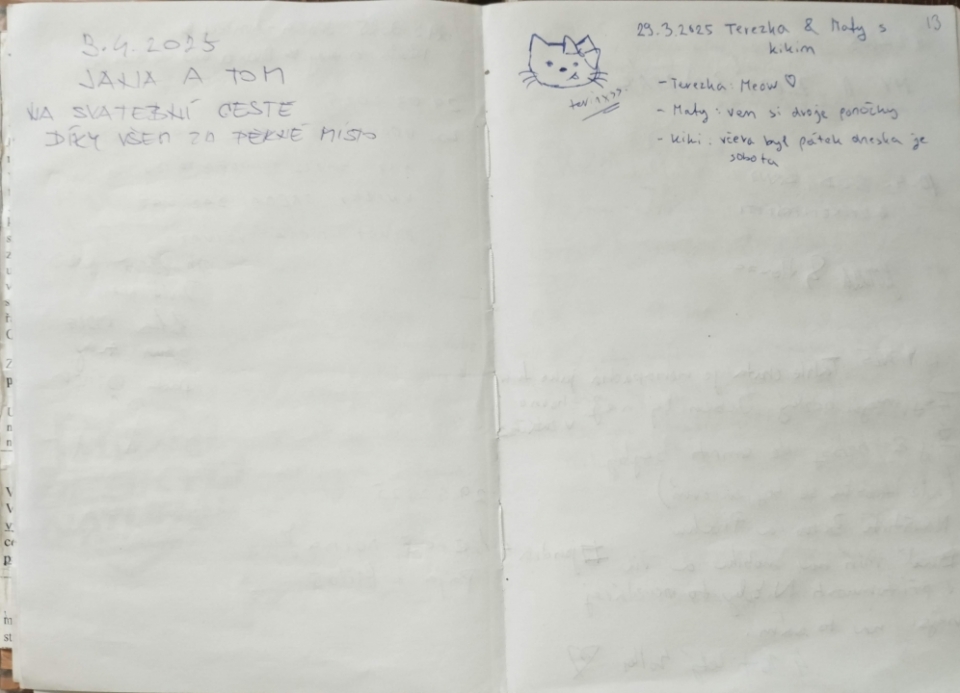 3.4.2025
JANA A TOM
NA SVATEBNÍ CESTE
DÍKY VŠEM ZA PEKNÉ MÍSTO
13
29.3.2025 Terezka & Maty s
kikim
- Terezka: Meow ♡
- Maty: vem si dvoje ponožky
- Kiki: včera byl pátek dneska je
sobota